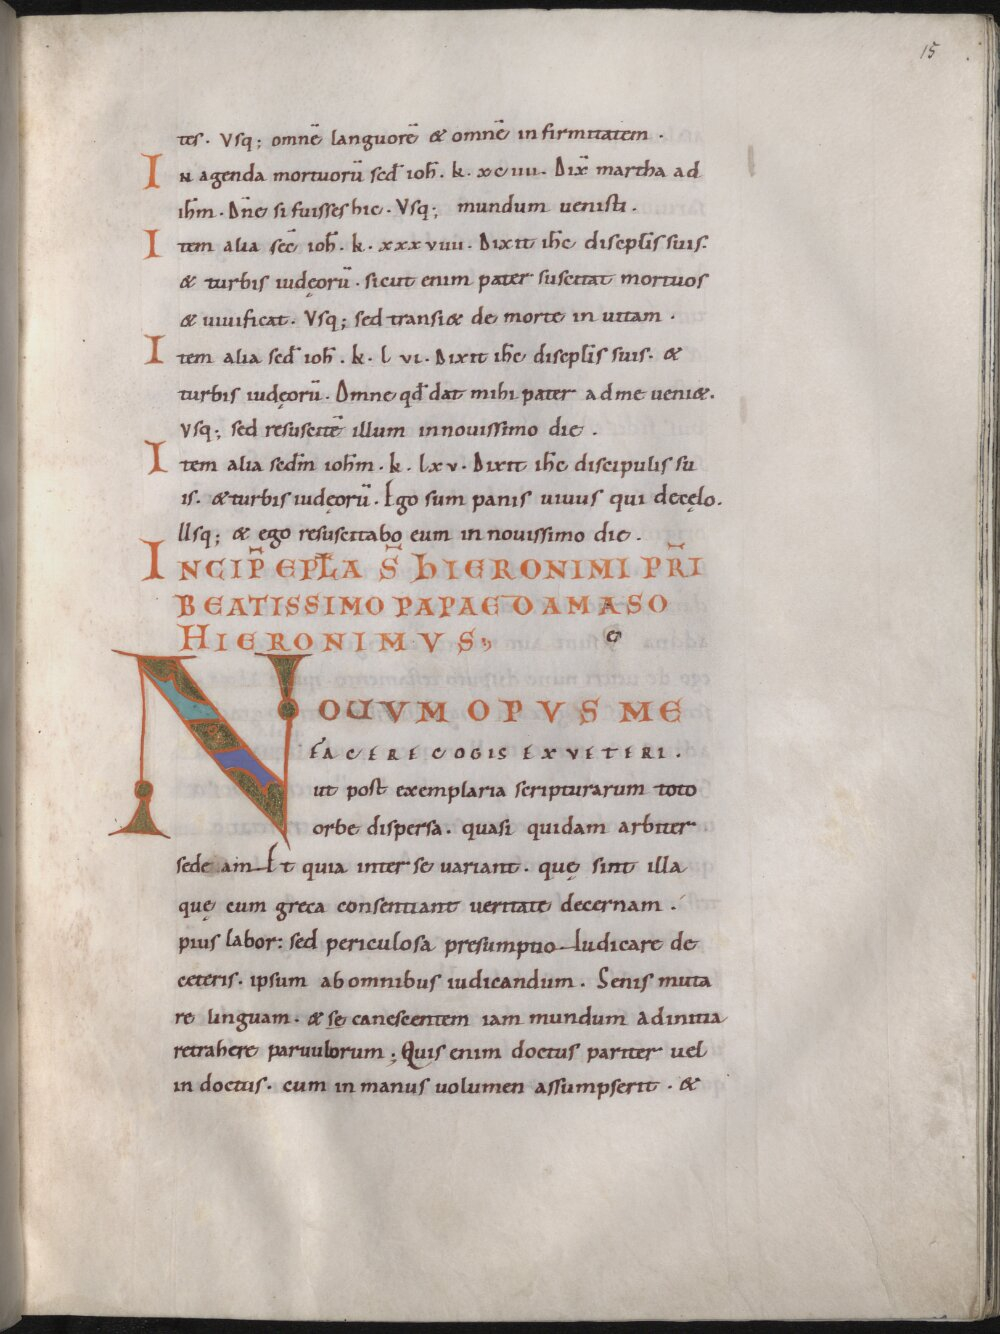 15
tes. Vsq; omnē languorē & omnē infirmitatem.
In agenda mortuorū sed̄ ioh̄. k. xciiii. Dix̄ martha ad
ih̄m. Dn̄e si fuisses hic. Vsq; mundum uenisti.
Item alia sec̄ ioh̄. k. xxxviiii. Dixit ih̄c discipl̄is suis.
& turbis iudęorū. sicut enim pater suscitat mortuos
& uiuificat. Vsq; sed transi& de morte in uitam.
Item alia sed̄ ioh̄. k. lvi. Dixit ih̄c discipl̄is suis. &
turbis iudęorū. Omne qd̄ dat mihi pater ad me ueni&.
Vsq; sed resuscitē illum in nouissimo die.
Item alia sedm̄ ioh̄m. k. lxv. Dixit ih̄c discipulis su
is. & turbis iudęorū. Ego sum panis uiuus qui de cęlo.
Usq; & ego resuscitabo eum in nouissimo die.
INCIP̄ EPL̄A S̄ HIERONIMI PR̄I
BEATISSIMO PAPAE DAMASO
HIERONIMVS
NOUVM OPVS ME
FACERE COGIS EX VETERI.
ut post exemplaria scripturarum toto
orbe dispersa. quasi quidam arbiter
sedeam. Et quia inter se uariant. quę sint illa
quę cum greca consentiant ueritate decernam.
pius labor: sed periculosa presumptio Iudicare de
ceteris. ipsum ab omnibus iudicandum. Senis muta
re linguam. & se canescentem iam mundum ad initia
retrahere paruulorum; Quis enim doctus pariter uel
indoctus. cum in manus uolumen assumpserit. &